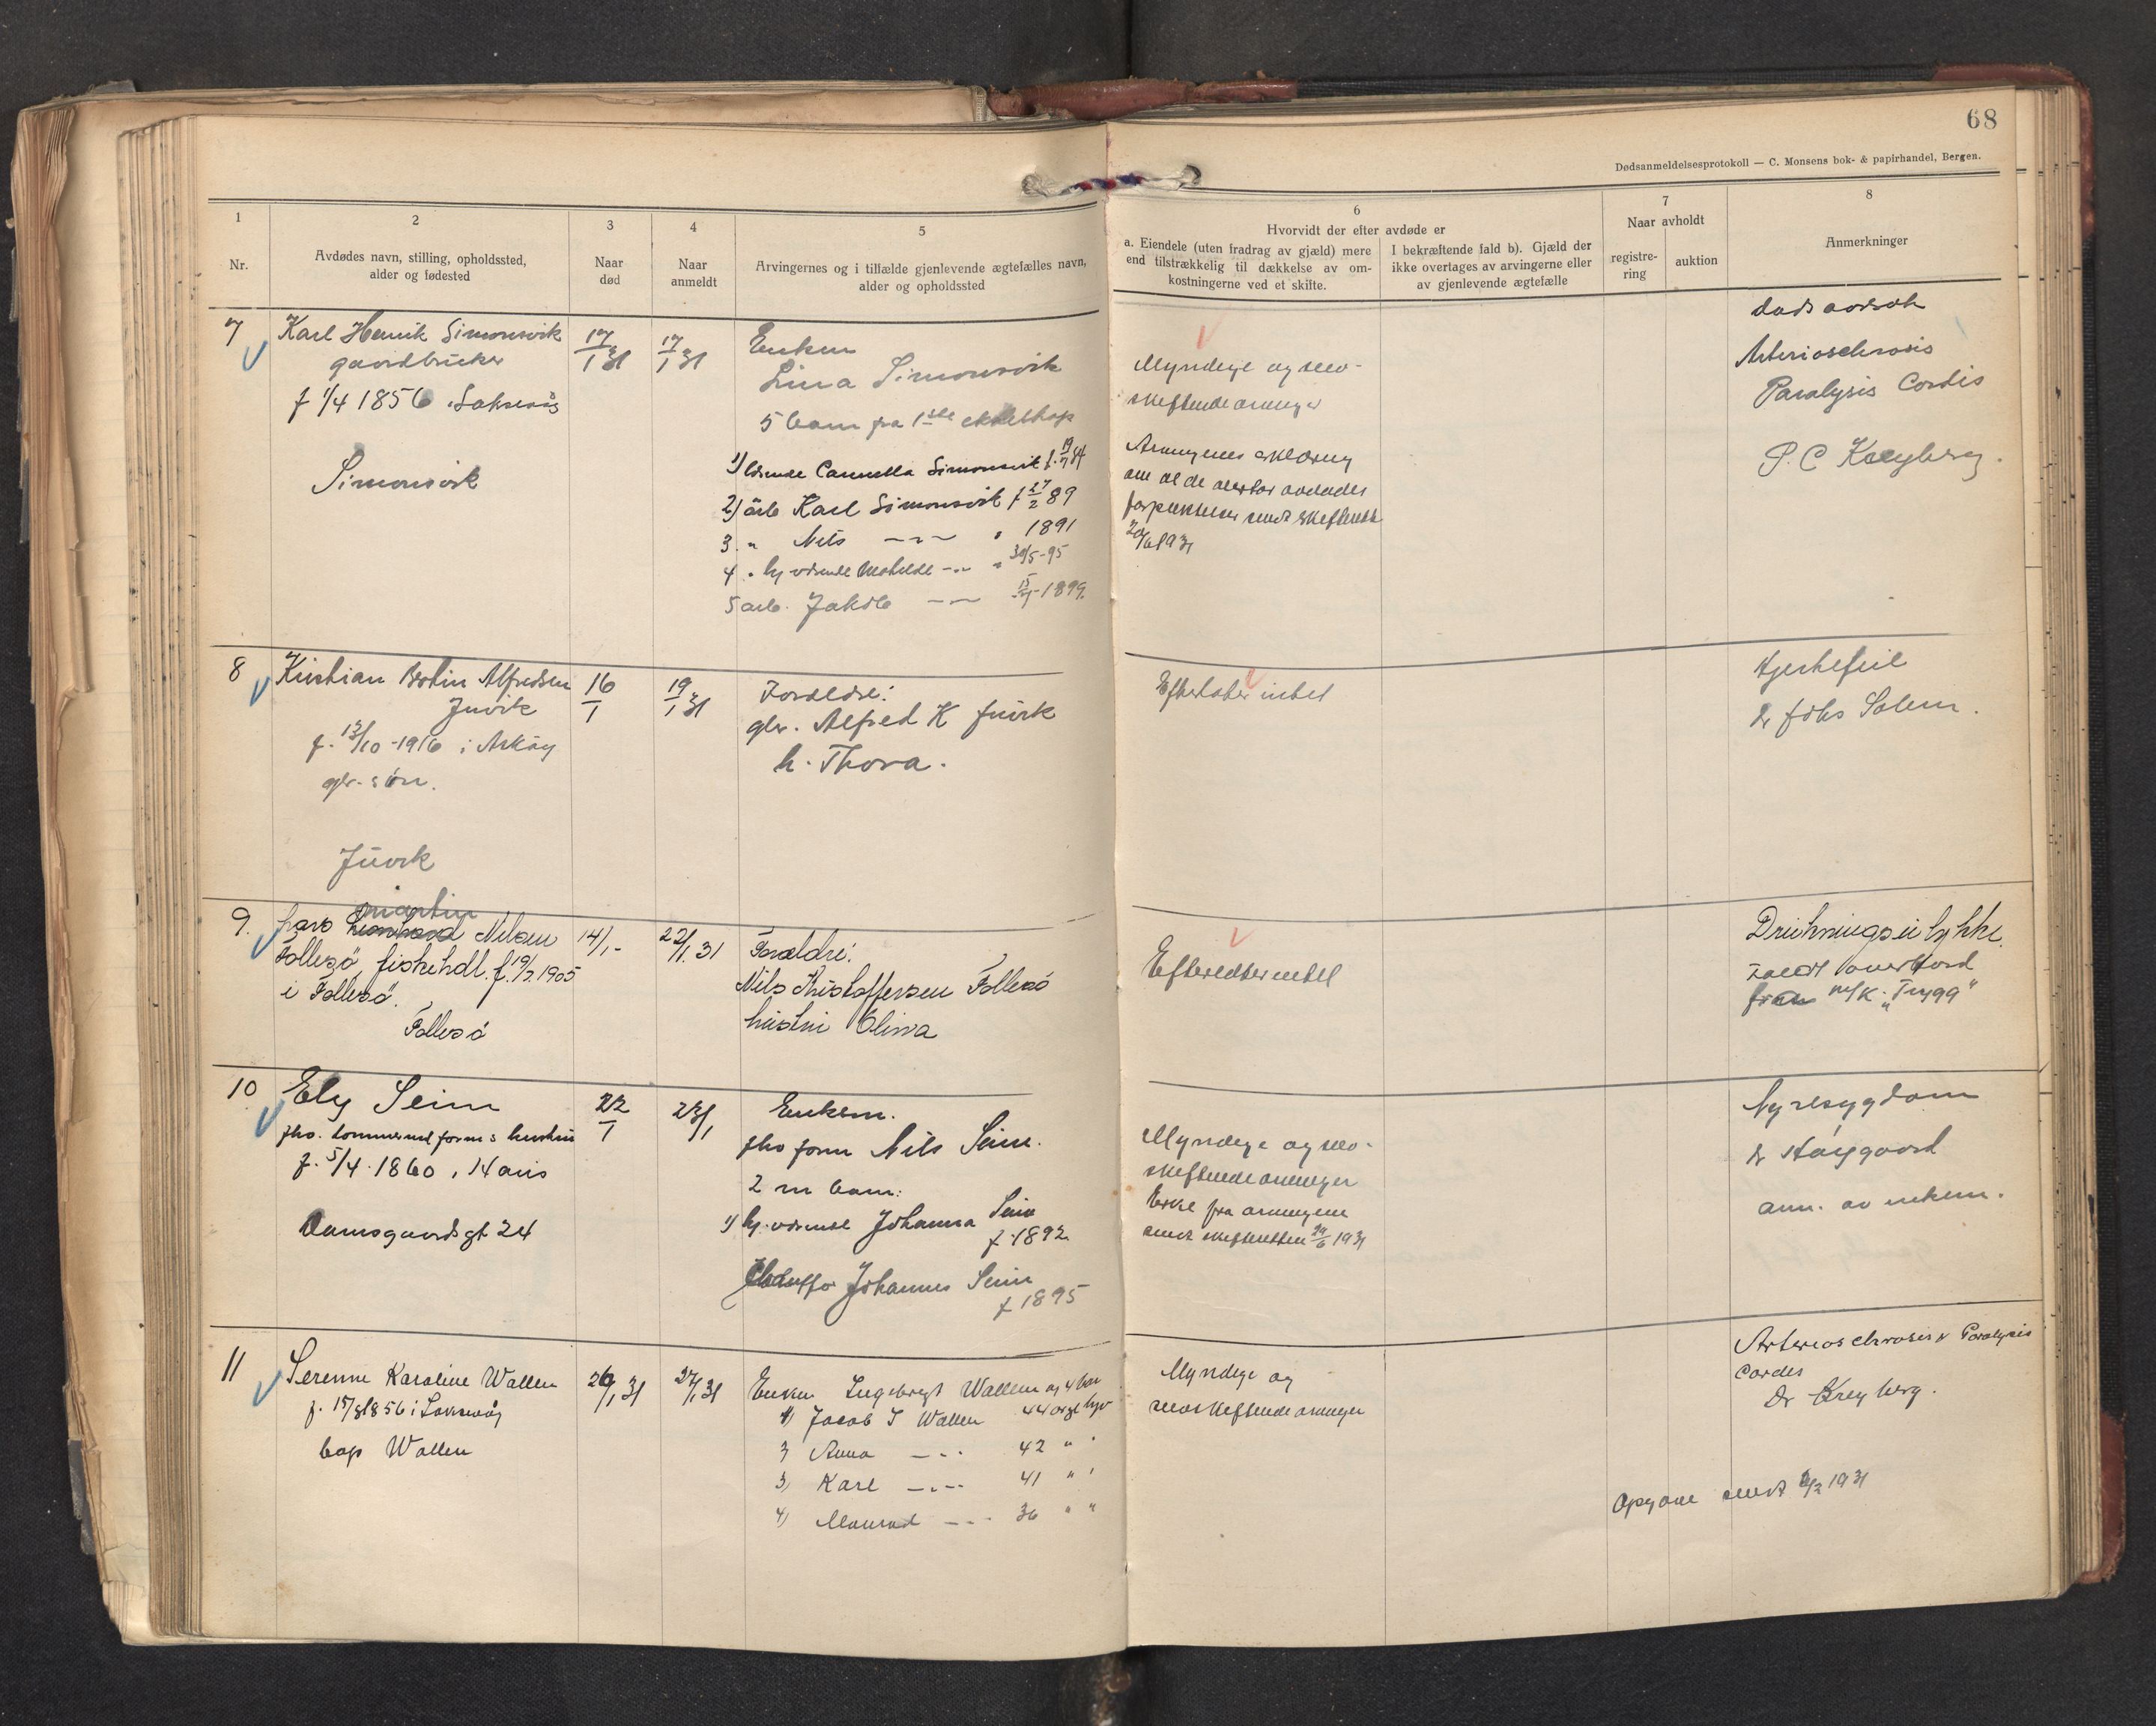 68
Dødsanmeldelsesprotokoll — C. Monsens bok- & papirhandel, Bergen.
1
Nr.
2
Avdødes navn, stilling, opholdssted,
alder og fødested
3
Naar
død
4
Naar
anmeldt
5
Arvingernes og i tilfælde gjenlevende ægtefælles navn,
alder og opholdssted
6
Hvorvidt der efter avdøde er
a. Eiendele (uten fradrag av gjæld) mere
end tilstrækkelig til dækkelse av om-
kostningerne ved et skifte.
I bekræftende fald b). Gjæld der
ikke overtages av arvingerne eller
av gjenlevende ægtefælle
7
Naar avholdt
registre-
ring
auktion
8
Anmerkninger
7
Karl Henrik Simonsvik
gaardbruker
f 1/4 1856 i Laksevåg
Simonsvik
17/1 31
17/1 31
Enken
Lina Simonsvik
5 barn fra 1ste ekteskap
1) Camilla Simonsvik f.
2) arb Karl Simonsvik f 27/2 89
3. " Nils 1891
4 Mathilde 30/5-95
5 arb. Jakob 1899.
Myndige og selv-
skiftende arvinger
Arvingenes erklæring
om at de avdødes
forpliktelser sendt skifteret
1931
dødsårsak
Arteriosclerosis
Paralysis Cordis
P. C Kreyberg.
8
Kristian Bertin Alfredsen
Juvik
f. 13/10-1916 i Askøy
gbr. søn.
Juvik
16/1
19/1 31
Foreldre:
gbr. Alfred K Juvik
h. Thora.
Efterlater intet
Hjertefeil
Dr Johs Solem.
9.
martin
Lars Nilsen
Follesø, fiskehdl. f. 19/7 1905
i Follesø.
Follesø
14/1-
22/1. 31
Forældre:
Nils Kristoffersen Follesø
hustru Oliva
Efterlater intet
Drukningsulykke.
Faldt overbord
fra m/k. "Trygg"
10
Ely Seim
fhv. tømmermd form s hustru
f. 5/4. 1860 i Manger
Damsgaards gt 24
22/1
23/1
Enkem.
fhv form Nils Seim.
2 m barn:
1) Johanna Seim
f. 1892
Johannes Seim
f 1895
Myndige og selv-
skiftende arvinger
Erkl fra arvingene
sendt skifteretten 29/6 1931
Nyresygdom
Dr
anm. av enkem.
11
Serenne Karoline Wallem
f. 15/8 1856 i Laksevåg
bop Wallem
26/1 31
27/1 31
Ingebrigt Wallem og 4 barn
1) Jacob I Wallem 44
2) Anna 42 "
3) Karl 41 "
4) Monrad 36 " "
Myndige og
selvskiftende arvinger
Arteriosclerosis & Paralysis
Cordis
Dr Kreyberg.
Opgave sendt 1931